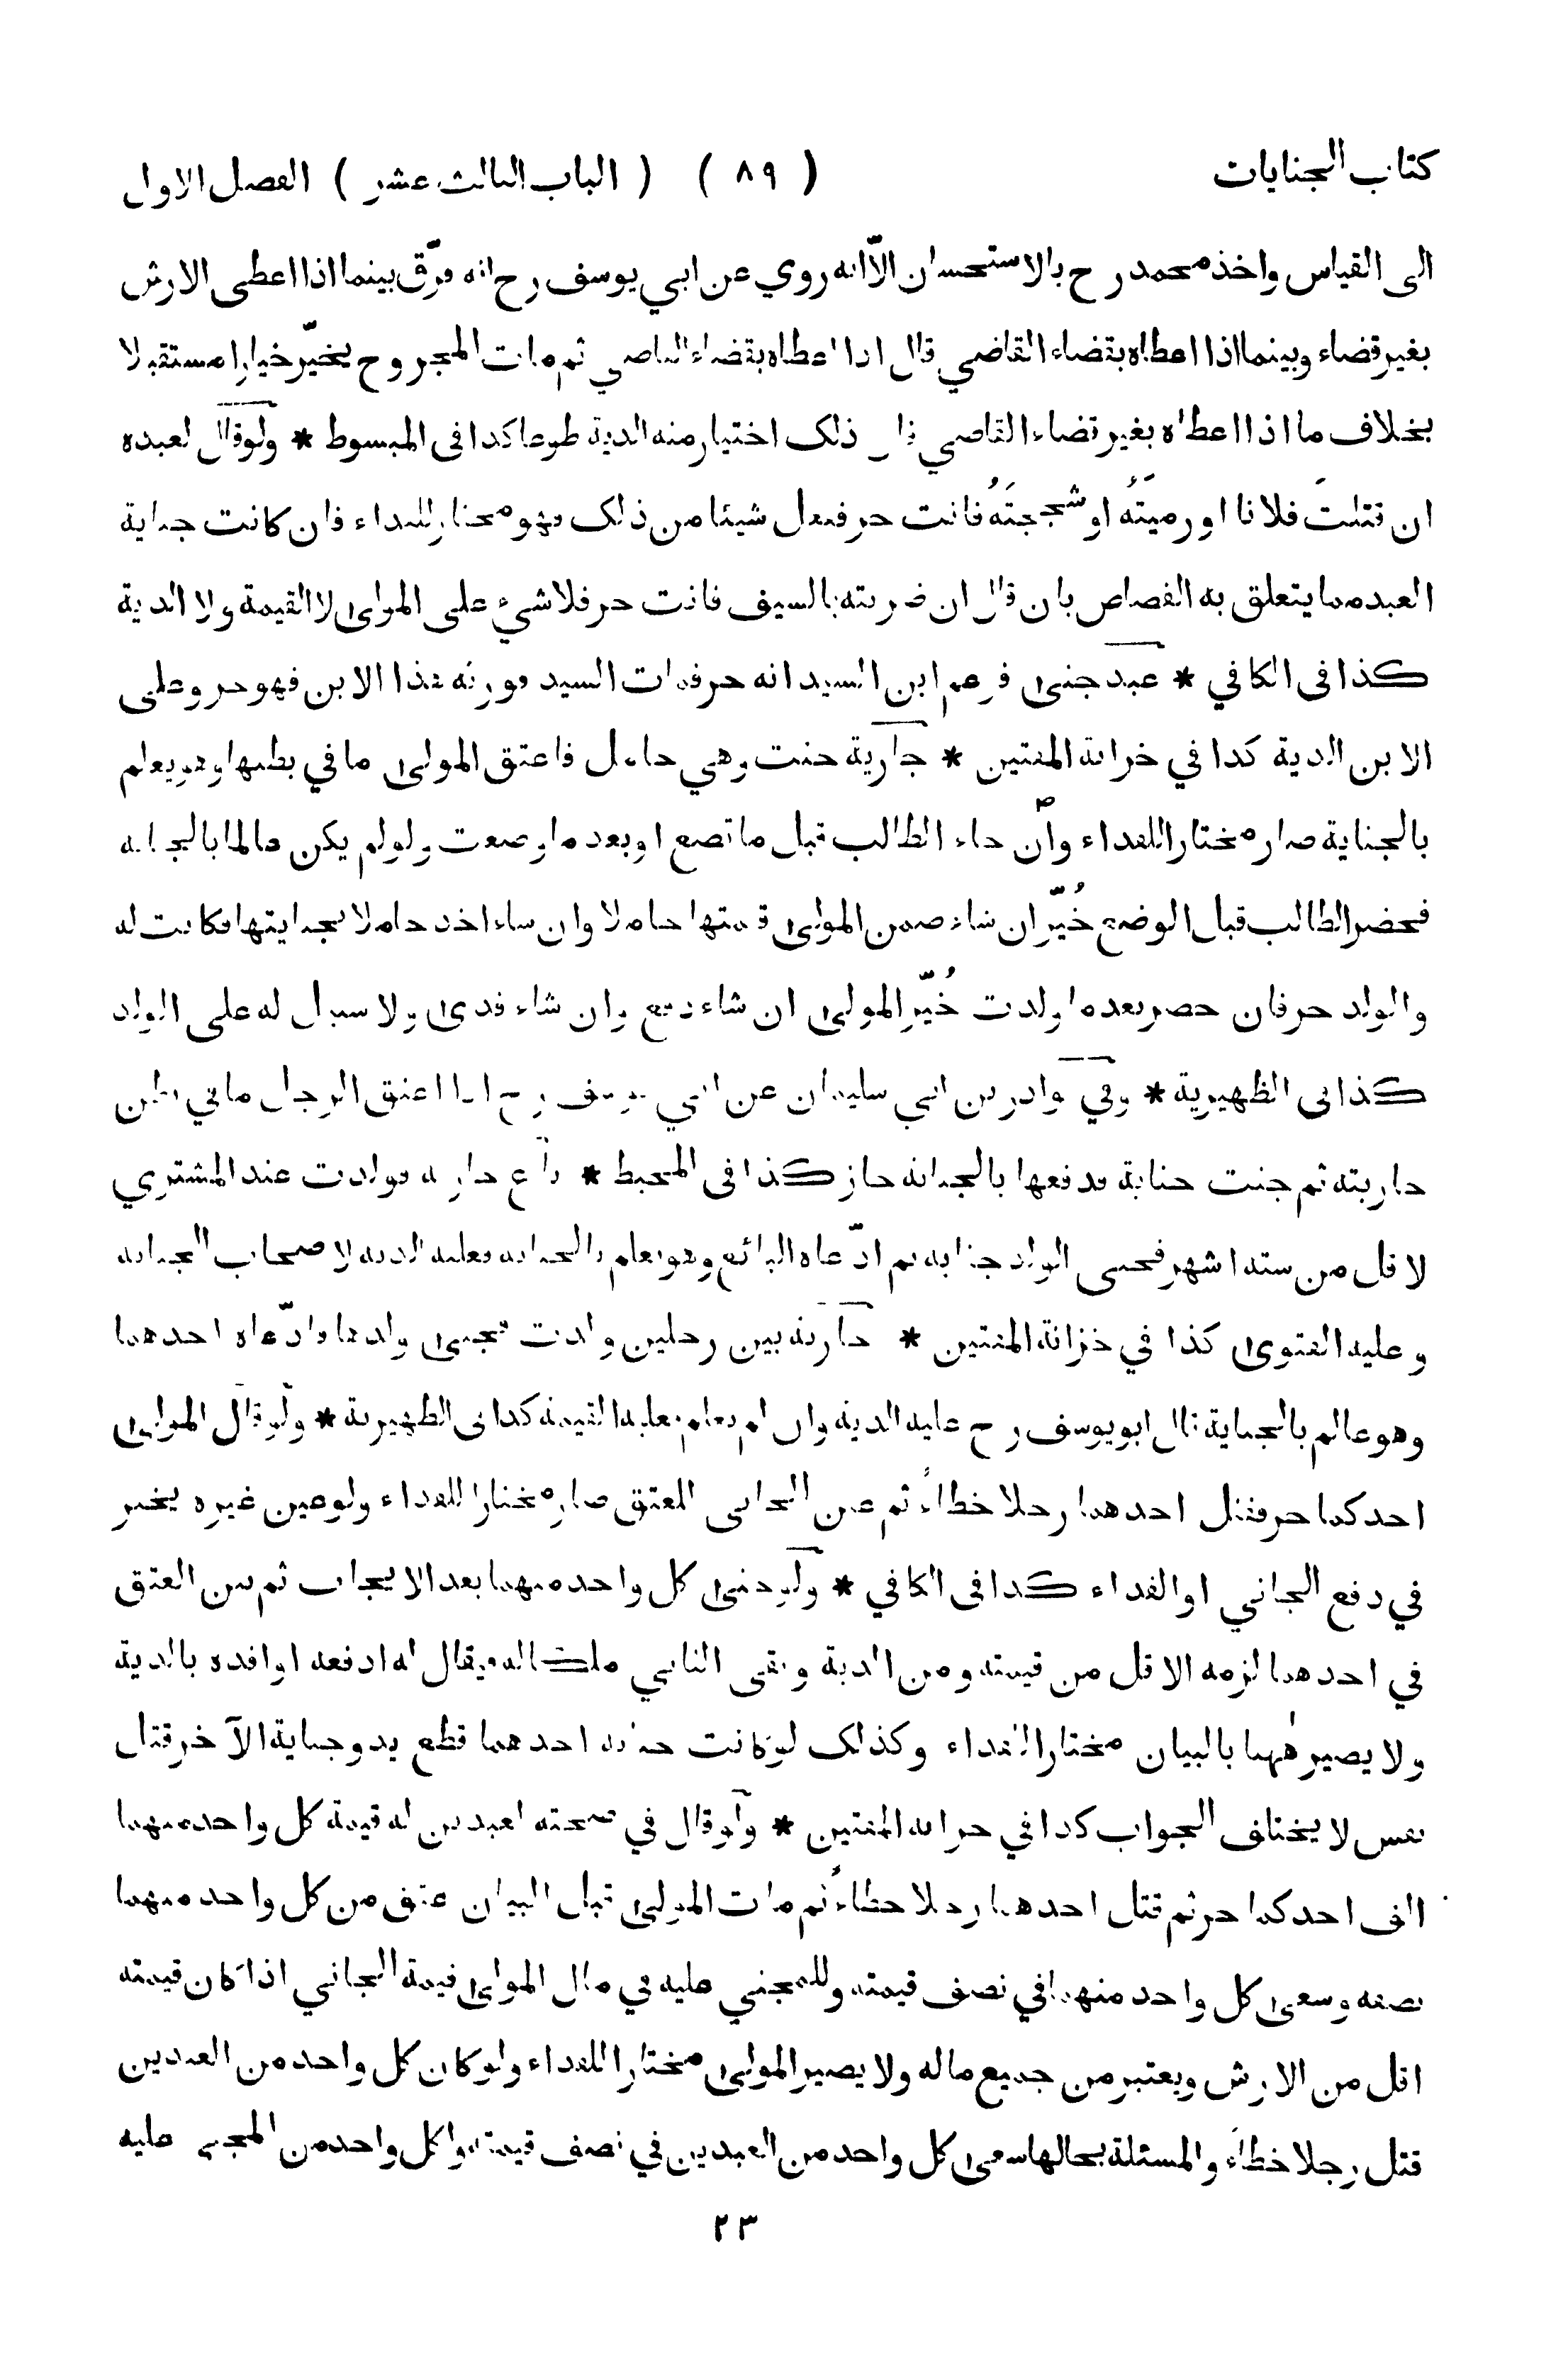 كتاب الجنايات ( ٨٩ ) ( الباب الثالث عشر ) الفصل الاول
الى القياس واخذ محمد رح بالاستحسان الّا انه روي عن ابي يوسف رح انه فرّق بينما اذا اعطى الارش
بغير قضاء وبينما اذا اعطاه بقضاء القاضي قال اذا اعطاه بقضاء القاضي ثم مات المجروح يخيّر خيارا مستقبلا
بخلاف ما اذا اعطاه بغير قضاء القاضي فان ذلك اختيار منه الدية طوعا كذا في المبسوط * ولو قال لعبده
ان قتلتَ فلانا او رميتَه او شججتَهُ فانت حر ففعل شيئا من ذلك فهو مختار للفداء فان كانت جناية
العبد مما يتعلق به القصاص بان قال ان ضربته بالسيف فانت حر فلا شيء على المولى لا القيمة ولا الدية
كذا في الكافي * عبد جنى فزعم ابن السيد انه حر فمات السيد فورثه هذا الابن فهو حر وعلى
الابن الدية كذا في خزانة المفتين * جارية جنت وهي حامل فاعتق المولى ما في بطنها وهو يعلم
بالجناية صار مختارا للفداء وان جاء الطالب قبل ما تضع او بعد ما وضعت ولو لم يكن عالما بالجناية
فحضر الطالب قبل الوضع خُيّر ان شاء ضمن المولى قيمتها حاملا وان شاء اخذ حاملا بجنايتها فكانت له
والولد حر فان حضر بعد ما ولدت خُيّر المولى ان شاء دفع وان شاء فدى ولا سبيل له على الولد
كذا في الظهيرية * وفي نوادر بن ابي سليمان عن ابي يوسف رح اذا اعتق الرجل ما في بطن
جاريته ثم جنت جناية فدفعها بالجناية جاز كذا في المحيط * باع جارية فولدت عند المشتري
لاقل من ستة اشهر فجنى الولد جناية ثم ادّعاه البائع وهو يعلم بالجناية فعليه الدية لاصحاب الجناية
وعليه الفتوى كذا في خزانة المفتين * جارية بين رجلين ولدت فجنى ولدها فادّعاه احدهما
وهو عالم بالجناية قال ابو يوسف رح عليه الدية وان لم يعلم فعليه القيمة كذا في الظهيرية * ولو قال المولى
احدكما حر فقتل احدهما رجلا خطاءً ثم عين الجاني للعتق صار مختارا للفداء ولو عين غيره يخير
في دفع الجاني او الفداء كذا في الكافي * ولو جنى كل واحد منهما بعد الايجاب ثم بين العتق
في احدهما لزمه الاقل من قيمته ومن الدية وبقى الثاني ملكا له فيقال له ادفعه او افده بالدية
ولا يصير ههنا بالبيان مختارا للفداء وكذلك لو كانت جناية احدهما قطع يد وجناية الآخر قتل
نفس لا يختلف الجواب كذا في خزانة المفتين * ولو قال في صحته لعبدين له قيمة كل واحد منهما
الف احدكما حر ثم قتل احدهما رجلا خطاءً ثم مات المولى قبل البيان عتق من كل واحد منهما
نصفه وسعى كل واحد منهما في نصف قيمته وللمجني عليه في مال المولى قيمة الجاني اذا كان قيمته
اقل من الارش ويعتبر من جميع ماله ولا يصير المولى مختارا للفداء ولو كان كل واحد من العبدين
قتل رجلا خطاءً والمسئلة بحالها سعى كل واحد من العبدين في نصف قيمته ولكل واحد من المجني عليه
٢٣